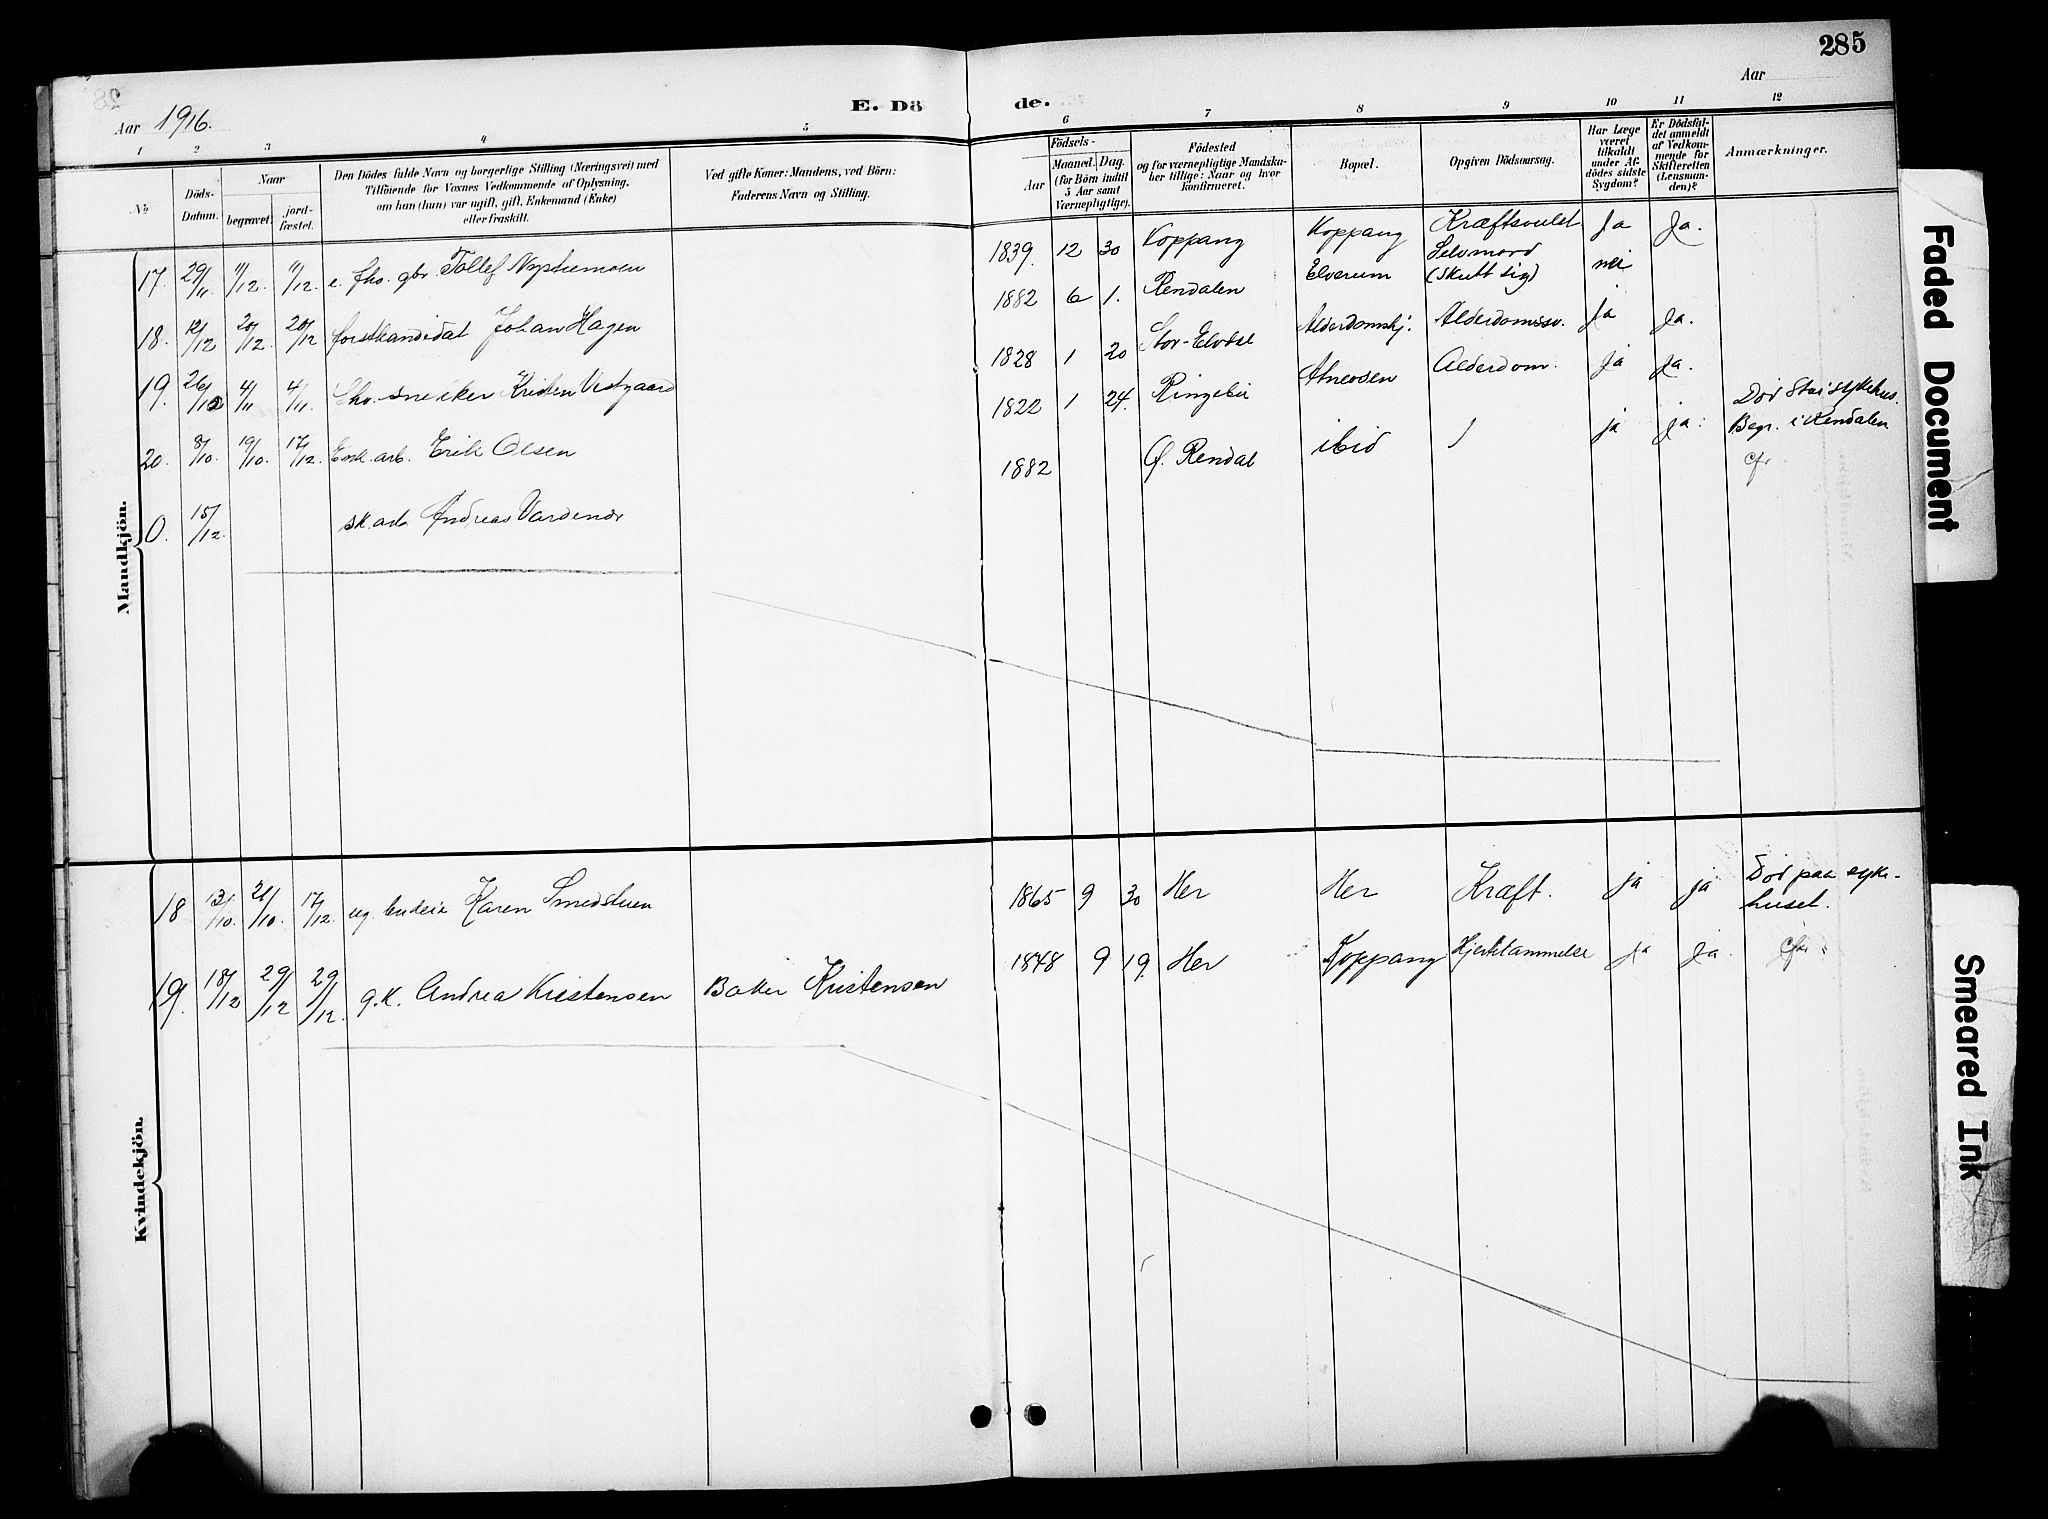 285
Aar 1916.
E. Dö de.
Aar
1 2 3 4 5 6 7 8 9 10 11 12
No
Döds-Datum.
Naar
begravet.
jord-fæstet.
Den Dödes fulde Navn og borgerlige Stilling (Næringsvei) med
Tilföiende for Voxnes Vedkommende af Oplysning,
om han (hun) var ugift, gift, Enkemand (Enke)
eller fraskilt.
Ved gifte Koner: Mandens, ved Börn:
Faderens Navn og Stilling.
Födsels-
Aar
Maaned. Dag.
(for Börn indtil
5 Aar samt
Værnepligtige).
Födested
og for værnepligtige Mandska-
ber tillige: Naar og hvor
konfirmeret.
Bopæl.
Opgiven Dödsaarsag.
Har Læge
været
tilkaldt
under Af-
dödes sidste
Sygdom?
Er Dödsfal-
det anmeldt
af Vedkom-
mende for
Skifteretten
(Lensman-
den)?
Anmærkninger.
Mandkjön.
17. 29/11 1/12. 1/12. e. fho. gbr. Tollef Nystuemoen 1839. 12 30 Koppang Koppang Kræftsvulst Ja Ja.
18. 12/12 20/12. 20/12 forstkandidat Johan Hagen 1882 6 1. Rendalen Elverum Selvmord (skutt sig) nei
19. 26/10 4/11 4/11. fho. snekker Kristen Vestgaard 1828 1 20 Stor-Elvdal Alderdomshj. Alderdomssv. ja ja.
20. 8/10. 19/10. 17/12. Enk. arb. Erik Olsen 1822 1 24. Ringebu Atneosen Alderdom. ja ja.
0. 15/12. sk. arb. Andreas Vardenær 1882 Ø. Rendal ibid ja ja. Död Stai sykehus.
Begr. i Rendalen
cfr
Kvindekjön.
18 13/10. 21/10. 17/12. ug. Karen Smedstuen 1865 9 30 Her Her Kræft. ja ja Död paa syke-
huset.
19. 18/12 29/12 29/12. g.k. Andrea Kristensen Baker Kristensen 1848 9 19. Her Koppang Hjertelammelse ja ja. cfr
Faded Document
Smeared Ink